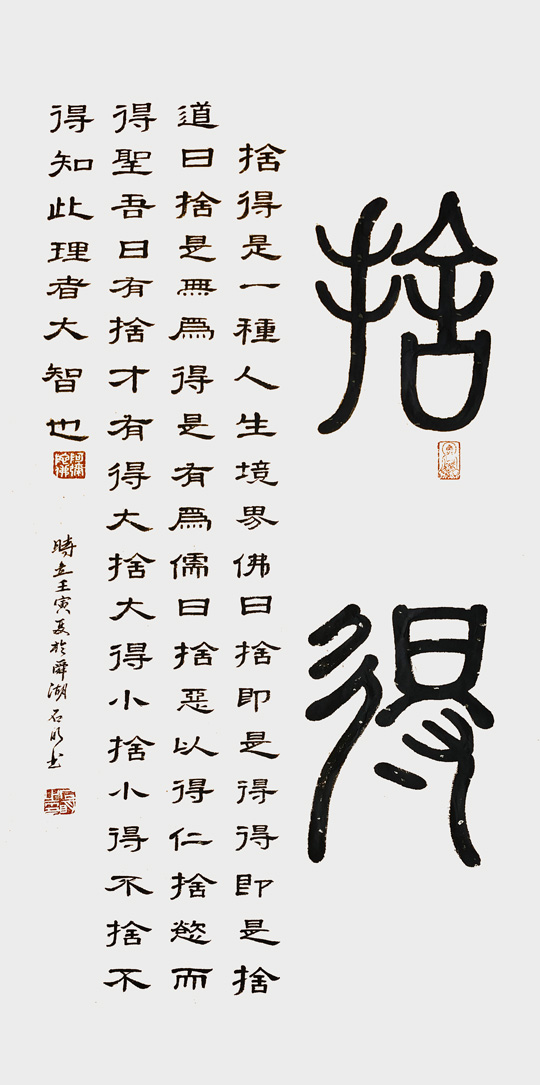 捨得
捨得是一種人生境界佛曰捨即是得得即是捨
道曰捨是無爲得是有爲儒曰捨惡以得仁捨慾而
得聖吾曰有捨才有得大捨大得小捨小得不捨不
得知此理者大智也
阿彌陀佛
時在壬寅夏於舜湖石明書